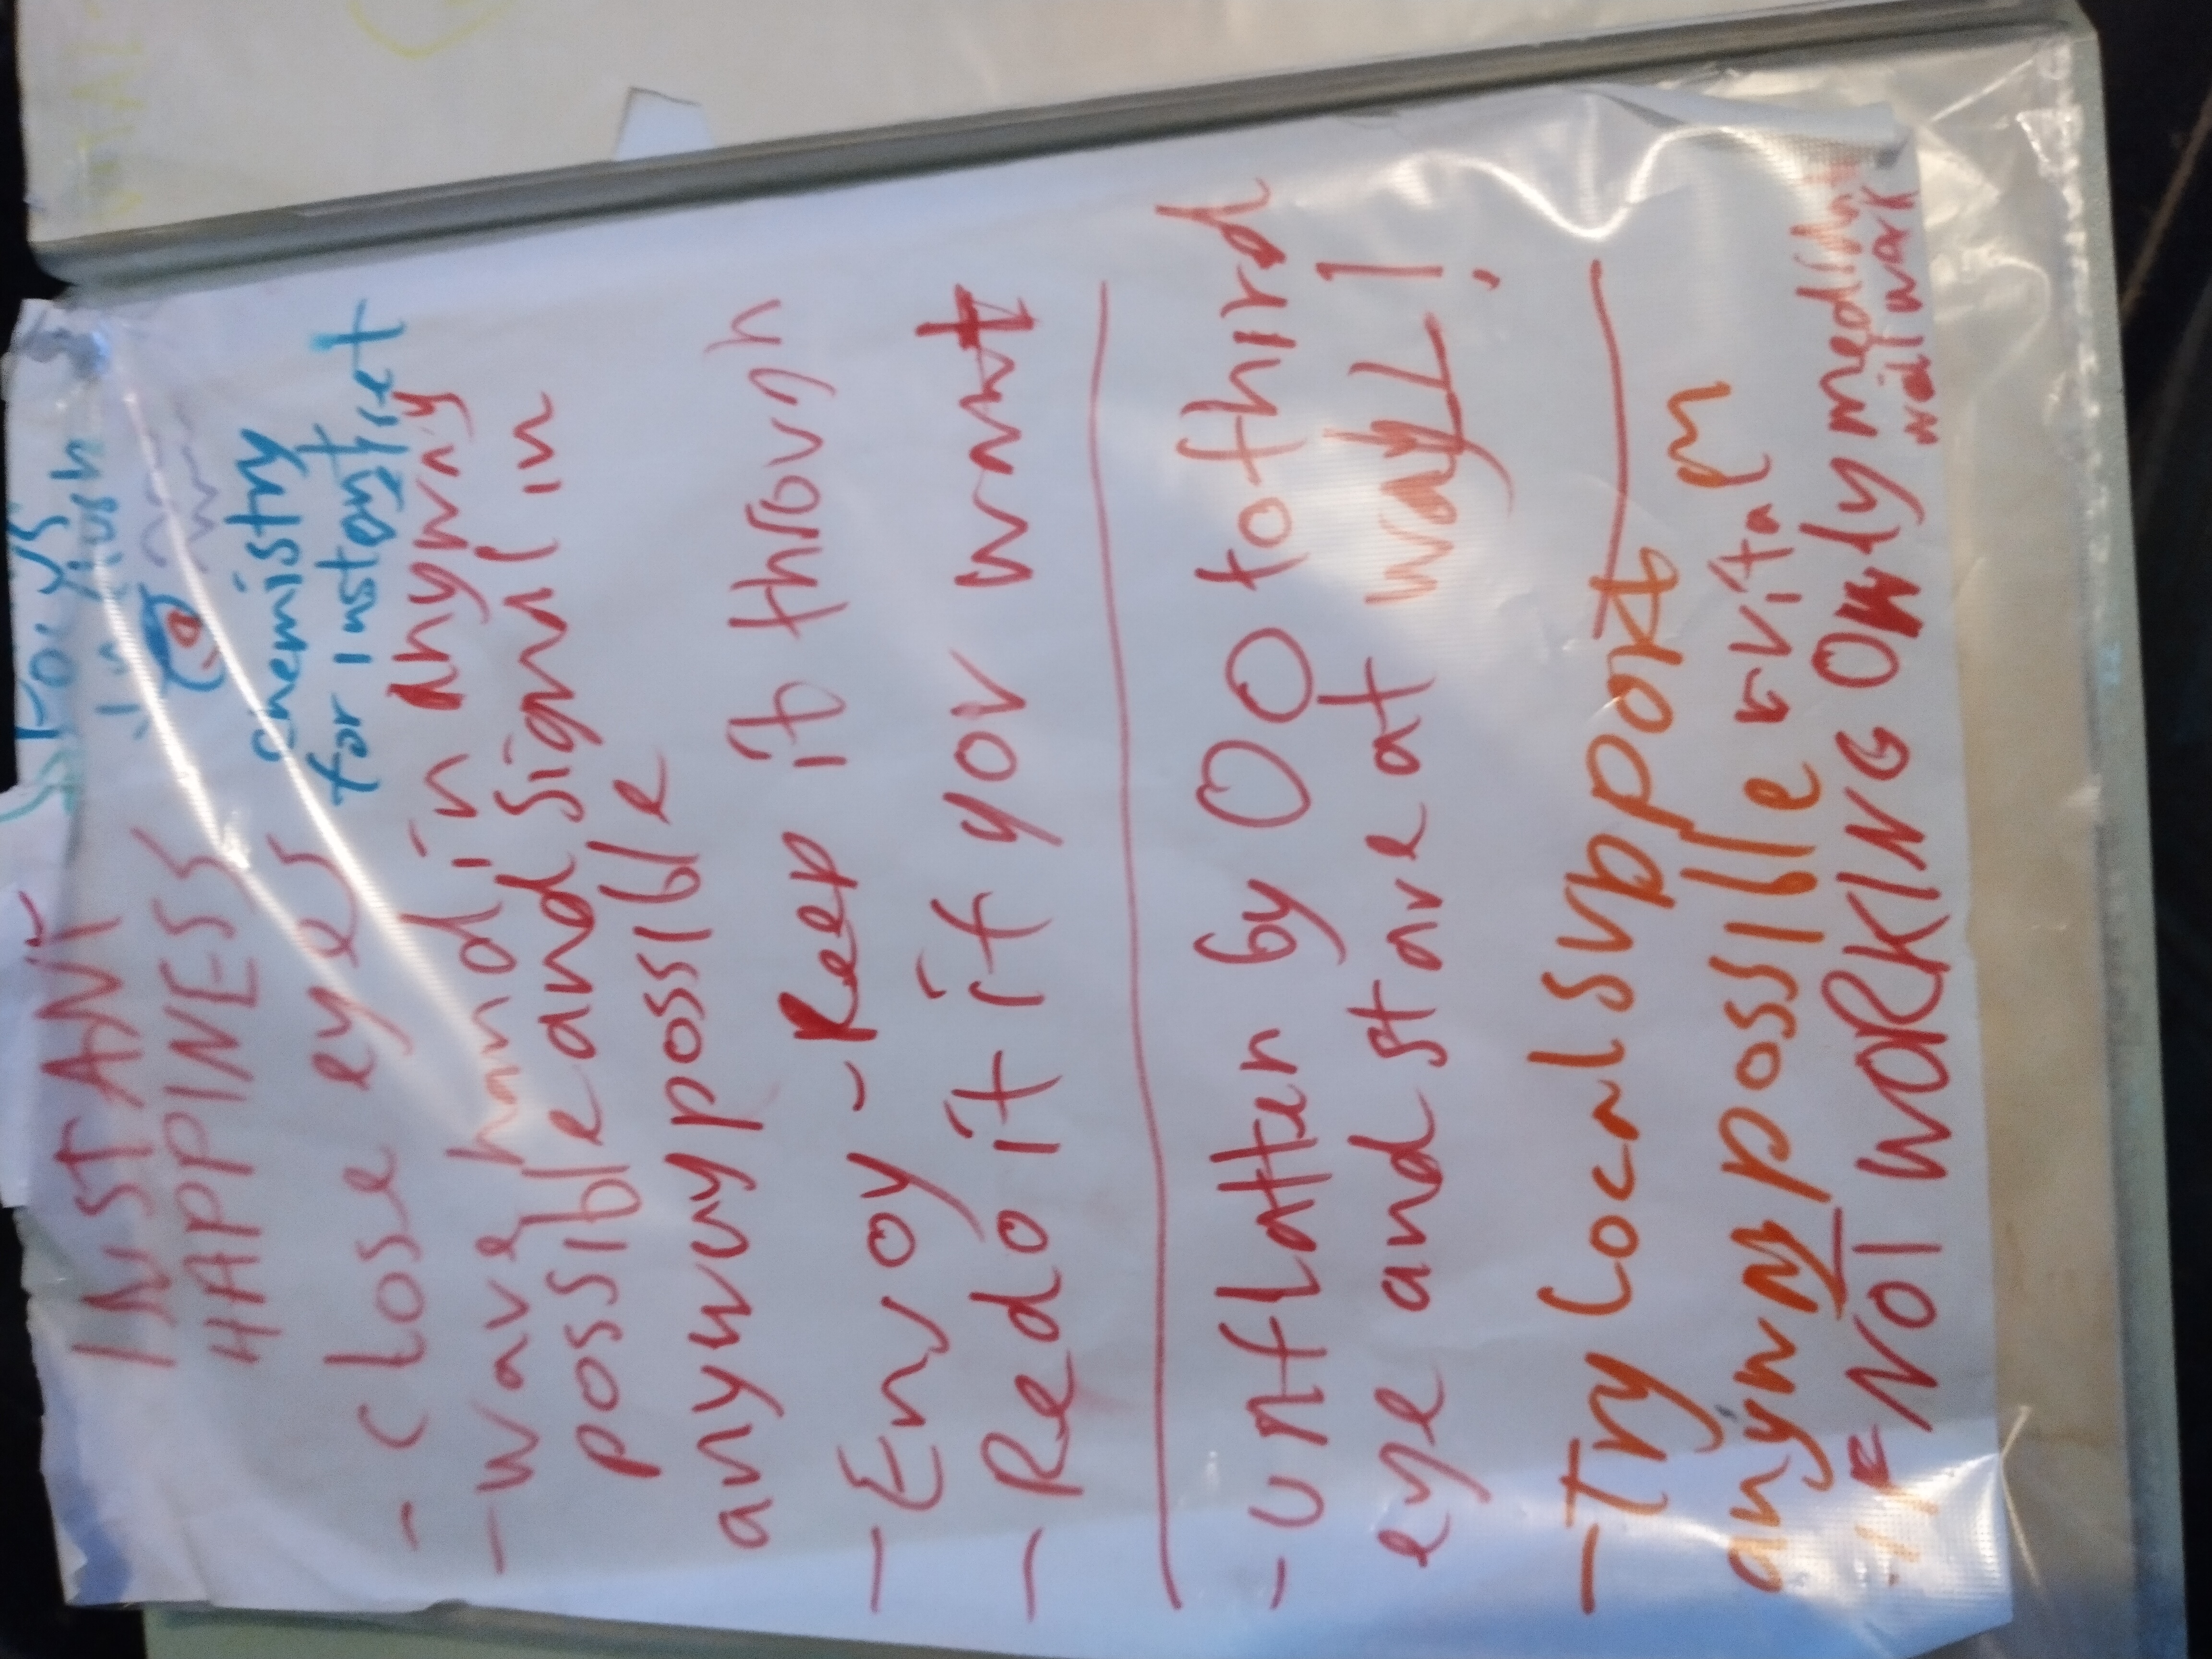 INSTANT
HAPPINESS
FOCUS
chemistry
for instant
- close eyes
-wave hand in anyway
possible and signal in
anyway possible
- Envoy - Keep it through
- Redo it if you want
- unflatten by OO to third
eye and stare at wall!
- Try local support
anyway possible
- IF NOT WORKING ONLY